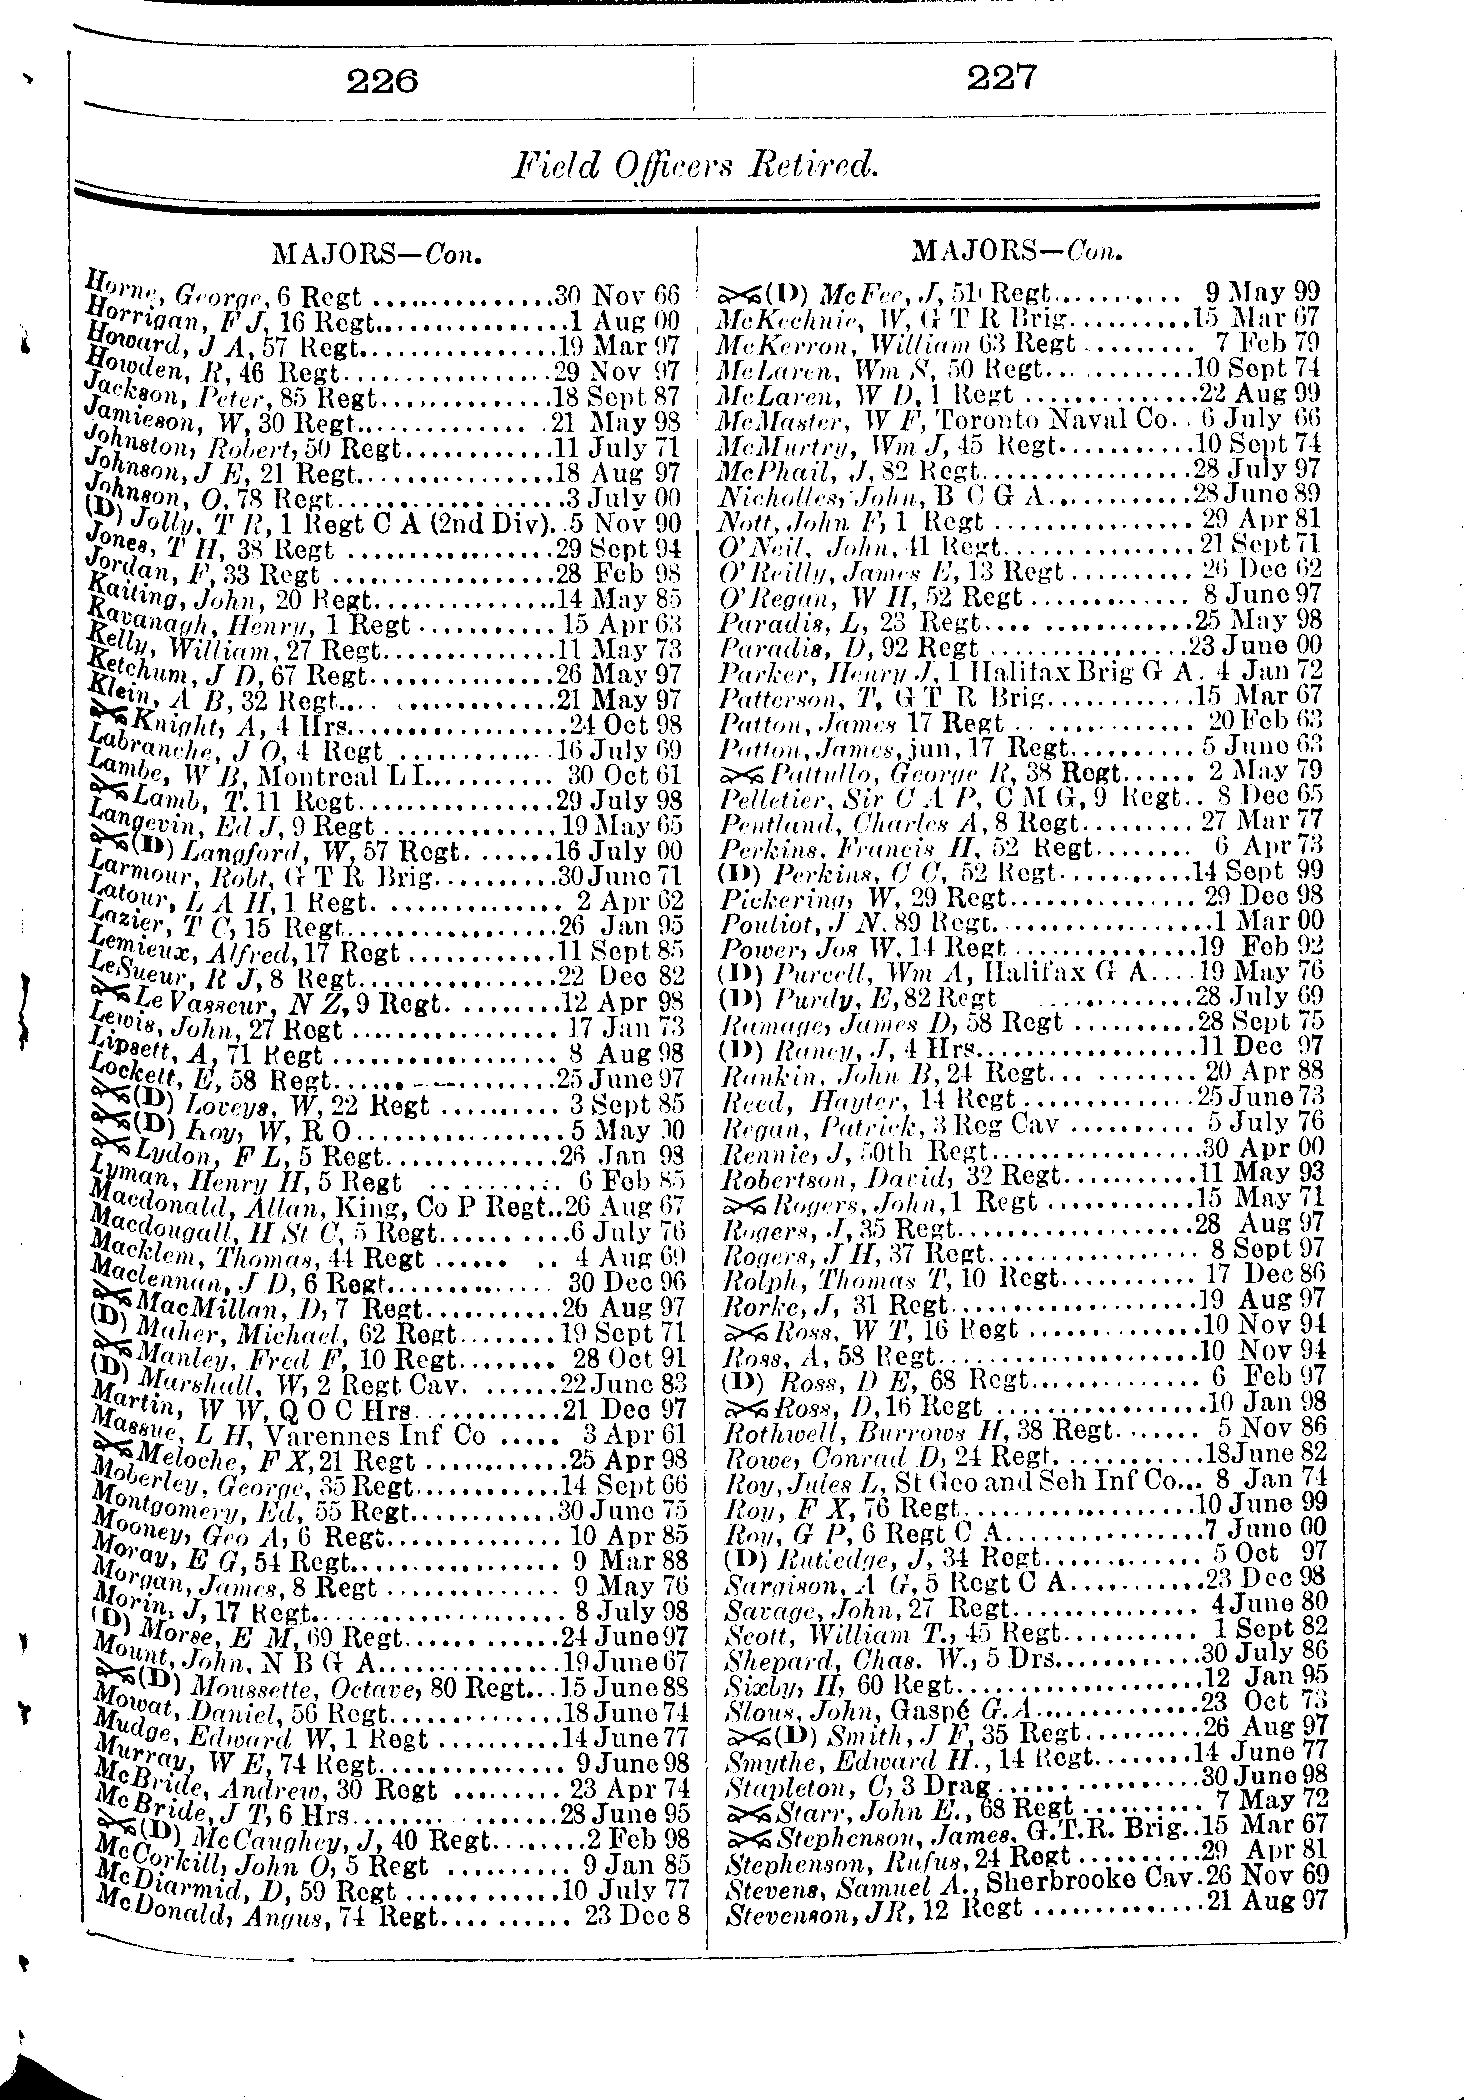 226
227
Field Officers Retired.
MAJORS—Con.
Horne, George, 6 Regt ..................30 Nov 66
Horrigan, F J, 16 Regt..................1 Aug 00
Howard, J A, 57 Regt..................19 Mar 97
Howden, R, 46 Regt..................29 Nov 97
Jackson, Peter, 85 Regt...............18 Sept 87
Jamieson, W, 30 Regt............... .21 May 98
Johnston, Robert, 50 Regt............11 July 71
Johnson, J E, 21 Regt..................18 Aug 97
Johnson, O, 78 Regt....................3 July 00
(D) Jolly, T R, 1 Regt C A (2nd Div)..5 Nov 90
Jones, T H, 38 Regt ..................29 Sept 94
Jordan, F, 33 Regt ...................28 Feb 98
Kaiting, John, 20 Regt................14 May 85
Kavanagh, Henry, 1 Regt ............15 Apr 63
Kelly, William, 27 Regt...............11 May 73
Ketchum, J D, 67 Regt................26 May 97
Klein, A B, 32 Regt.... .............21 May 97
Knight, A, 4 Hrs...................24 Oct 98
Labranche, J O, 4 Regt ..............16 July 69
Lambe, W B, Montreal L I........... 30 Oct 61
Lamb, T. 11 Regt..................29 July 98
Langevin, Ed J, 9 Regt................19 May 65
(D) Langford, W, 57 Regt. .......16 July 00
Larmour, Robt, G T R Brig..........30 June 71
Latour, L A H, 1 Regt. ............... 2 Apr 62
Lazier, T C, 15 Regt...................26 Jan 95
Lemieux, Alfred, 17 Regt.............11 Sept 85
LeSueur, R J, 8 Regt..................22 Dec 82
Le Vasseur, N Z, 9 Regt. ..........12 Apr 98
Lewis, John, 27 Regt .................. 17 Jan 73
Lipsett, A, 71 Regt ................... 8 Aug 98
Lockett, E, 58 Regt......——........25 June 97
(D) Loveys, W, 22 Regt .......... 3 Sept 85
(D) Roy, W, R O.................5 May 00
Lydon, F L, 5 Regt...............26 Jan 98
Lyman, Henry H, 5 Regt ........... 6 Feb 85
Macdonald, Allan, King, Co P Regt..26 Aug 67
Macdougall, H St C, 5 Regt...........6 July 76
Macklem, Thomas, 44 Regt ...... .. 4 Aug 69
Maclennan, J D, 6 Regt.............. 30 Dec 96
MacMillan, D, 7 Regt............26 Aug 97
(D) Maher, Michael, 62 Regt........19 Sept 71
Manley, Fred F, 10 Regt........ 28 Oct 91
(D) Marshall, W, 2 Regt Cav. ......22 June 83
Martin, W W, Q O C Hrs.............21 Dec 97
Massue, L H, Varennes Inf Co ..... 3 Apr 61
Meloche, F X, 21 Regt ...........25 Apr 98
Moberley, George, 35 Regt............14 Sept 66
Montgomery, Ed, 55 Regt............30 June 75
Mooney, Geo A, 6 Regt............... 10 Apr 85
Moray, E G, 54 Regt.................. 9 Mar 88
Morgan, James, 8 Regt ............... 9 May 76
Morin, J, 17 Regt..................... 8 July 98
(D) Morse, E M, 69 Regt.............24 June 97
Mount, John, N B G A...............19 June 67
(D) Moussette, Octave, 80 Regt...15 June 88
Mowat, Daniel, 56 Regt...............18 June 74
Mudge, Edward W, 1 Regt ...........14 June 77
Murray, W E, 74 Regt................. 9 June 98
McBride, Andrew, 30 Regt ......... 23 Apr 74
McBride, J T, 6 Hrs..................28 June 95
(D) McCaughey, J, 40 Regt........2 Feb 98
McCorkill, John O, 5 Regt .......... 9 Jan 85
McDiarmid, D, 59 Regt .............10 July 77
McDonald, Angus, 74 Regt.......... 23 Dec 8
MAJORS—Con.
(D) McFee, J, 51 Regt........... 9 May 99
McKechnie, W, G T R Brig..........15 Mar 67
McKerron, William 63 Regt ......... 7 Feb 79
McLaren, Wm S, 50 Regt.............10 Sept 74
McLaren, W D, 1 Regt ...............22 Aug 99
McMaster, W F, Toronto Naval Co.. 6 July 66
McMurtry, Wm J, 45 Regt...........10 Sept 74
McPhail, J, 82 Regt..................28 July 97
Nicholles, John, B C G A............28 June 89
Nott, John F, 1 Regt ................ 29 Apr 81
O'Neil, John, 41 Regt................21 Sept 71
O'Reilly, James E, 13 Regt .......... 26 Dec 62
O'Regan, W H, 52 Regt ............. 8 June 97
Paradis, L, 23 Regt.... .............25 May 98
Paradis, D, 92 Regt .................23 June 00
Parker, Henry J, 1 Halifax Brig G A. 4 Jan 72
Patterson, T, G T R Brig.............15 Mar 67
Patton, James 17 Regt ............... 20 Feb 63
Patton, James, jun, 17 Regt.......... 5 June 63
Pattullo, George R, 38 Regt...... 2 May 79
Pelletier, Sir C A P, C M G, 9 Regt.. 8 Dec 65
Pentland, Charles A, 8 Regt......... 27 Mar 77
Perkins, Francis H, 52 Regt........ 6 Apr 73
(D) Perkins, C C, 52 Regt...........14 Sept 99
Pickering, W, 29 Regt................ 29 Dec 98
Pouliot, J N. 89 Regt...................1 Mar 00
Power, Jos W. 14 Regt................19 Feb 92
(D) Purcell, Wm A, Halifax G A....19 May 76
(D) Purdy, E, 82 Regt .............28 July 69
Ramage, James D, 58 Regt ..........28 Sept 75
(D) Raney, J, 4 Hrs...................11 Dec 97
Rankin, John B, 24 Regt... ......... 20 Apr 88
Reed, Hayter, 14 Regt ..............25 June 73
Regan, Patrick, 3 Reg Cav .......... 5 July 76
Rennie, J, 50th Regt..................30 Apr 00
Robertson, David, 32 Regt...........11 May 93
Rogers, John, 1 Regt ............15 May 71
Rogers, J, 35 Regt....................28 Aug 97
Rogers, J H, 37 Regt.................. 8 Sept 97
Rolph, Thomas T, 10 Regt............ 17 Dec 86
Rorke, J, 31 Regt.....................19 Aug 97
Ross, W T, 16 Regt ...............10 Nov 94
Ross, A, 58 Regt......................10 Nov 94
(D) Ross, D E, 68 Regt.............. 6 Feb 97
Ross, D, 16 Regt ..................10 Jan 98
Rothwell, Burrows H, 38 Regt....... 5 Nov 86
Rowe, Conrad D, 24 Regt.............18 June 82
Roy, Jules L, St Geo and Seh Inf Co... 8 Jan 74
Roy, F X, 76 Regt....................10 June 99
Roy, G P, 6 Regt C A.................7 June 00
(D) Rutledge, J, 34 Regt............. 5 Oct 97
Sargison, A G, 5 Regt C A...........23 Dec 98
Savage, John, 27 Regt................ 4 June 80
Scott, William T., 45 Regt........... 1 Sept 82
Shepard, Chas. W., 5 Drs............30 July 86
Sixby, H, 60 Regt....................12 Jan 95
Slous, John, Gaspé G. A.............23 Oct 73
(D) Smith, J F, 35 Regt..........26 Aug 97
Smythe, Edward H., 14 Regt........14 June 77
Stapleton, C, 3 Drag.................30 June 98
Starr, John E., 68 Regt ........... 7 May 72
Stephenson, James, G.T.R. Brig..15 Mar 67
Stephenson, Rufus, 24 Regt ..........29 Apr 81
Stevens, Samuel A., Sherbrooke Cav.26 Nov 69
Stevenson, J R, 12 Regt ..............21 Aug 97